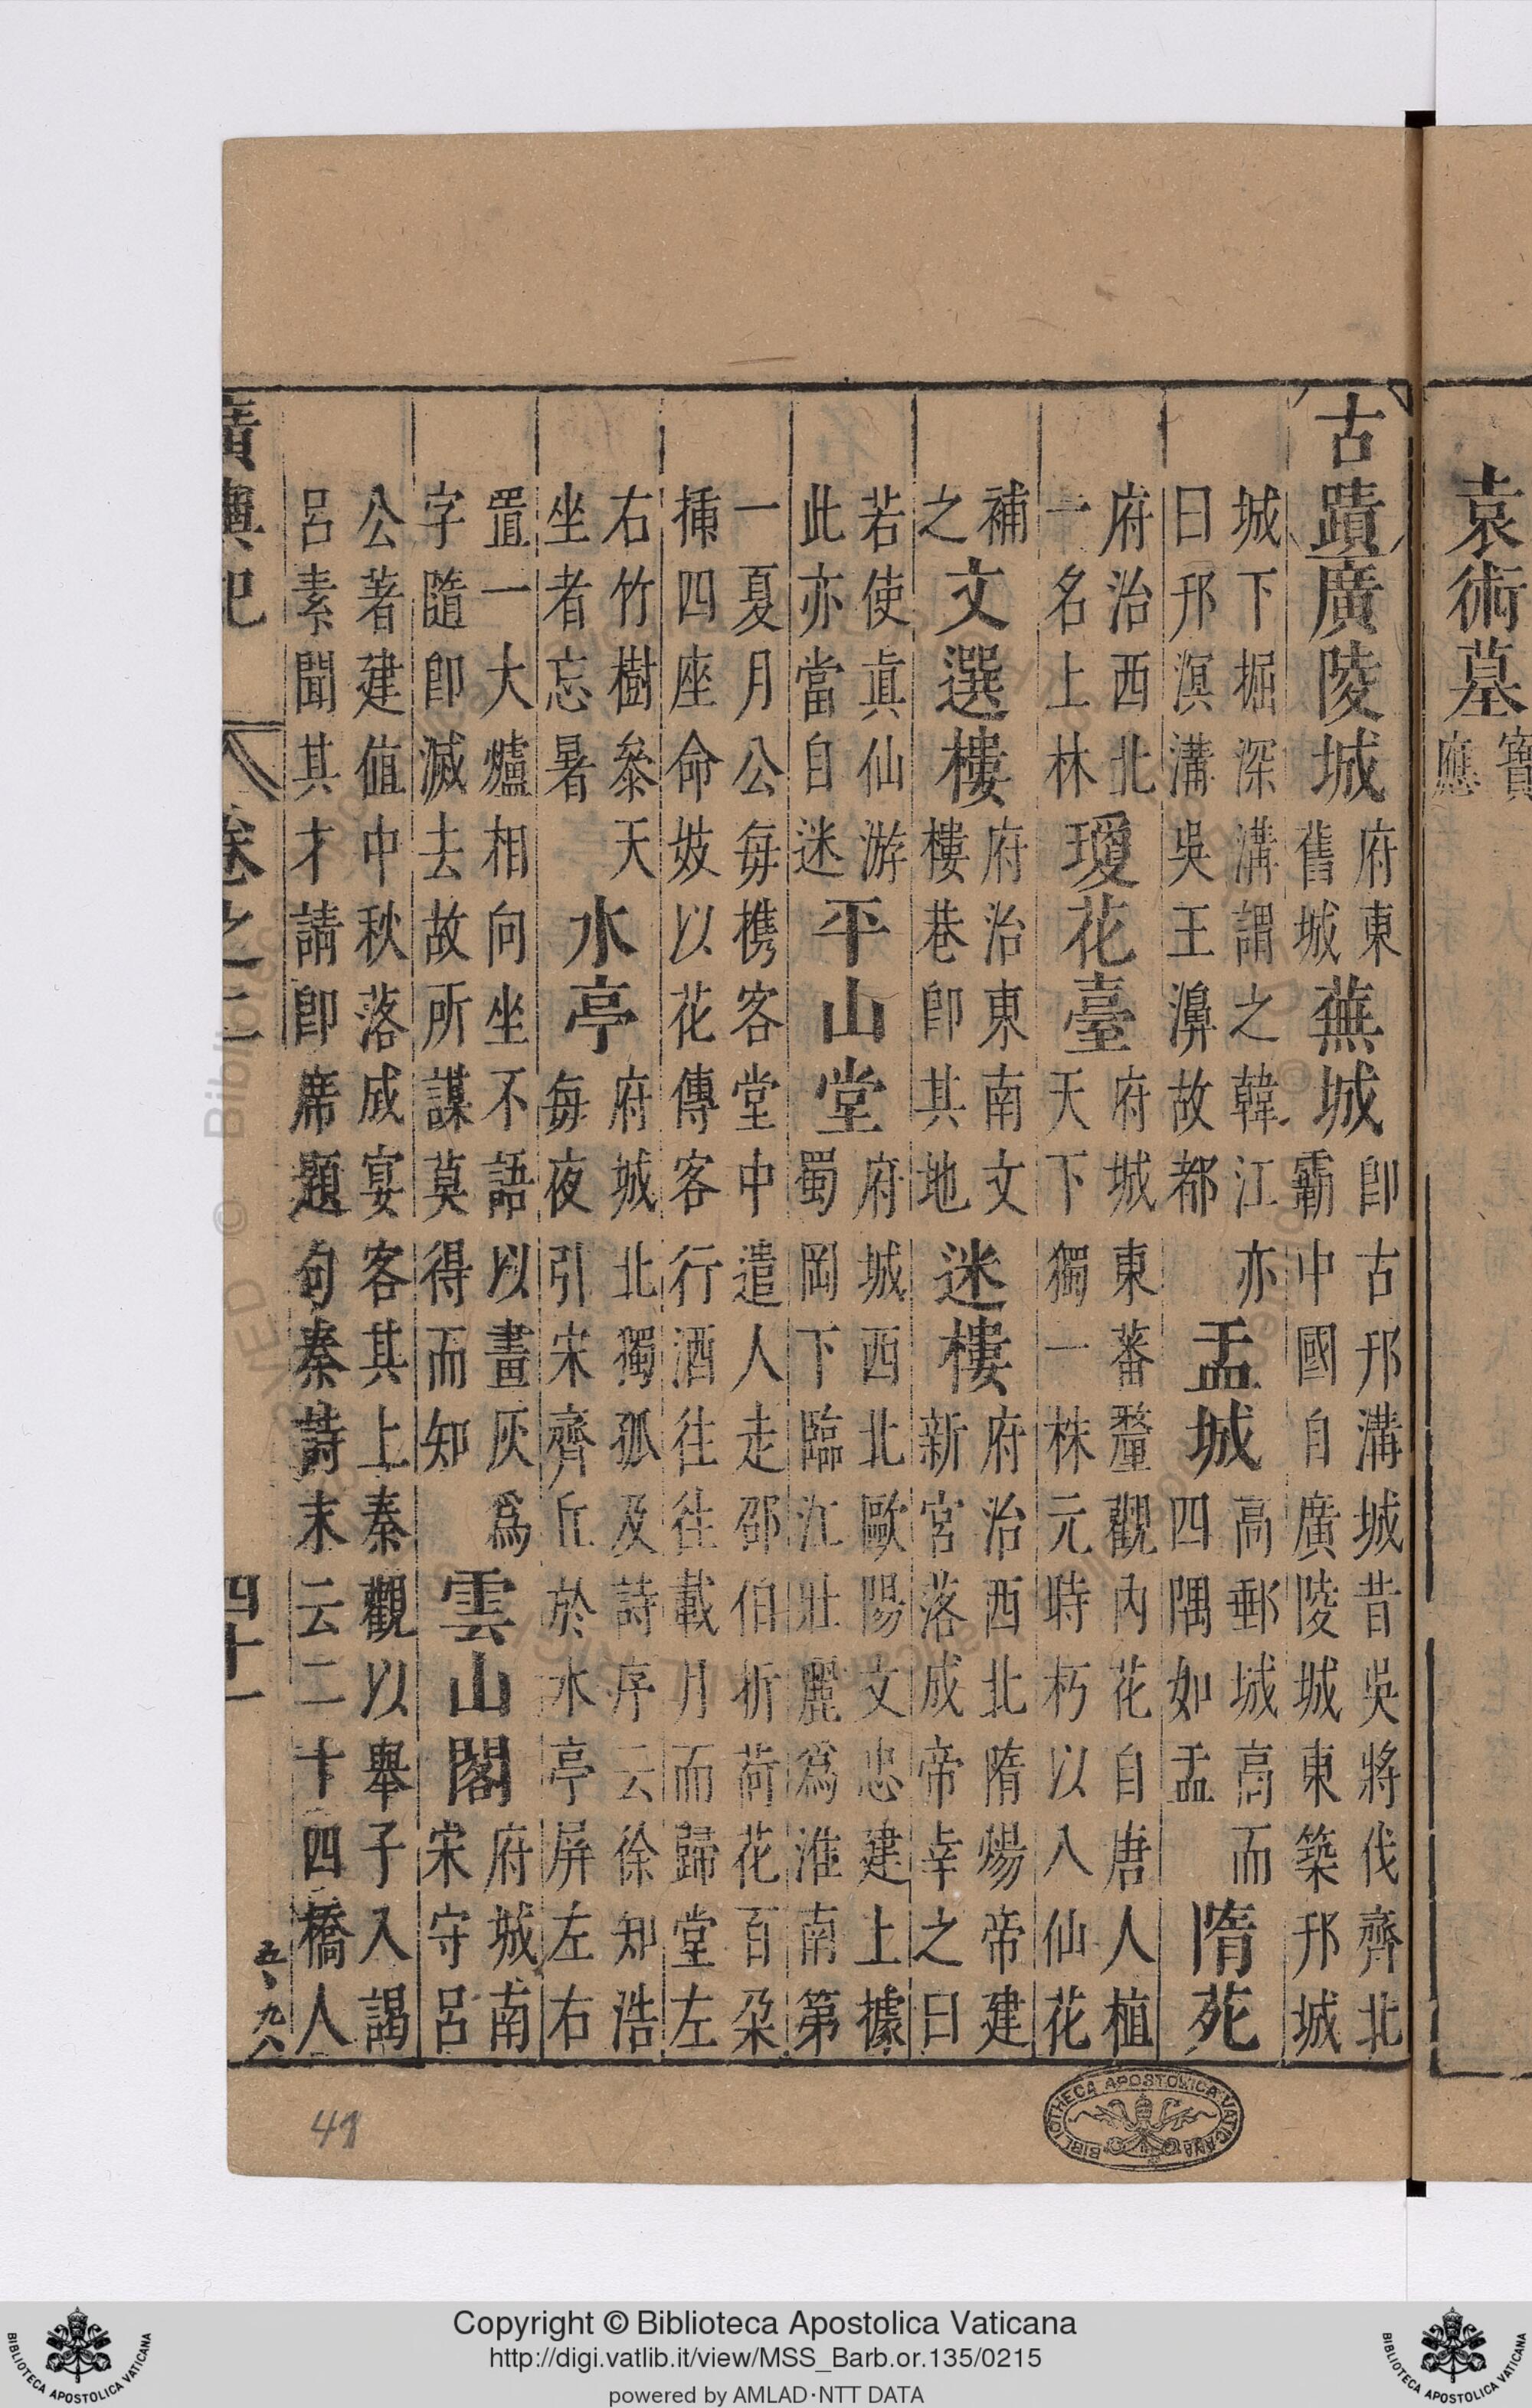 袁術墓寶應
古蹟廣陵城府東舊城蕪城卽古邗溝城昔吳將伐齊北霸中國自廣陵城東築邗城
城下掘深溝謂之韓江亦曰邗溟溝吳王濞故都盂城高郵城高而四隅如盂隋苑
府治西北一名上林瓊花臺府城東蕃釐觀內花自唐人植天下獨一株元時朽以八仙花
補之文選樓府治東南文樓巷卽其地迷樓府治西北隋煬帝建新宮落成帝幸之曰
若使眞仙游此亦當自迷平山堂府城西北歐陽文忠建上據蜀岡下臨江壯麗爲淮南第
一夏月公每携客堂中遣人走邵伯折荷花百朶揷四座命妓以花傳客行酒往往載月而歸堂左
右竹樹叅天坐者忘暑水亭府城北獨孤及詩序云徐知浩每夜引宋齊丘於水亭屏左右
置一大爐相向坐不語以畫灰爲字隨卽滅去故所謀莫得而知雲山閣府城南宋守呂
公著建値中秋落成宴客其上秦觀以舉子入謁呂素聞其才請卽席題句秦詩末云二十四橋人
廣輿記 卷之二 四十一
五九八
41
BIBLIOTHECA APOSTOLICA VATICANA
Copyright © Biblioteca Apostolica Vaticana
http://digi.vatlib.it/view/MSS_Barb.or.135/0215
powered by AMLAD·NTT DATA
BIBLIOTECA APOSTOLICA VATICANA
BIBLIOTECA APOSTOLICA VATICANA